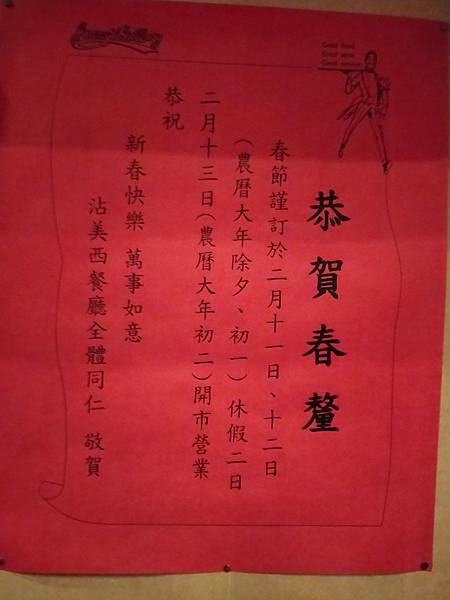 Good food
Good wine
Good service
恭賀春釐
春節謹訂於二月十一日、十二日
(農曆大年除夕、初一)休假二日
二月十三日(農曆大年初二)開市營業
恭祝
新春快樂 萬事如意
沾美西餐廳全體同仁 敬賀